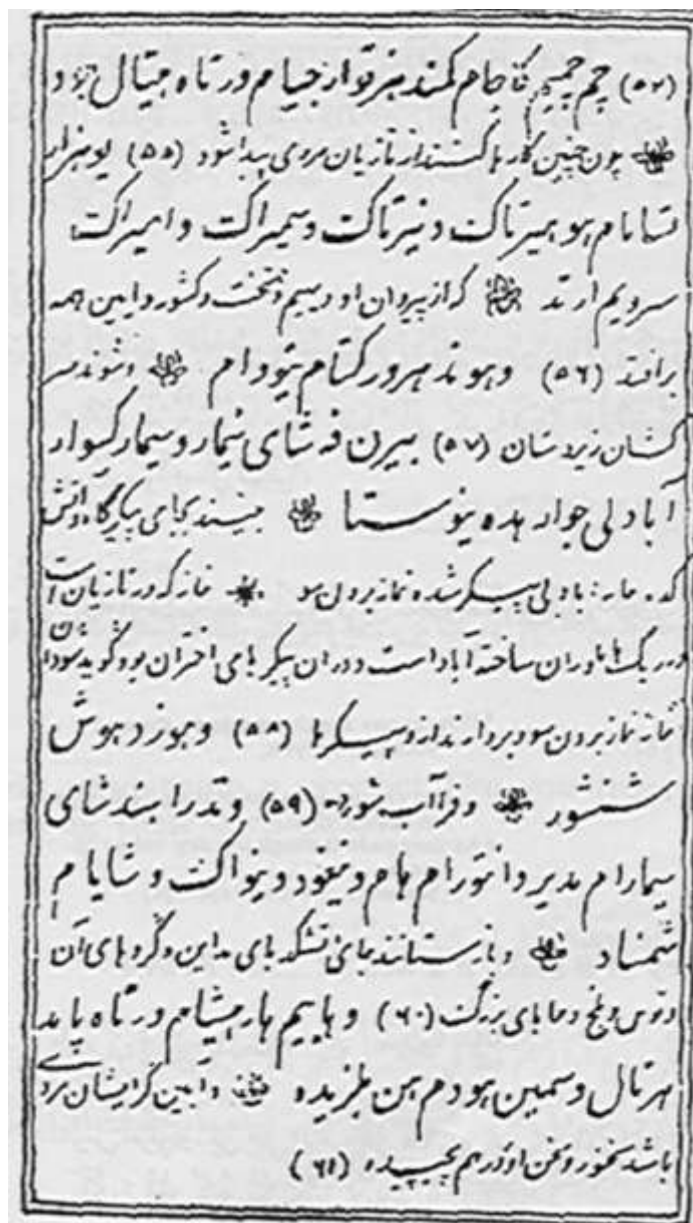 (۵۴) چم چمیم کاجام کمند هنر توار جیام ورتاه هیتال بود
چون چنین کارها کنند از تازیان مردی پیدا شود (۵۵) یو هزار
نشایام هو هیرتاک و نیرتاک و سمیراک و امیراک
سرویم ارتد که از پیروان او دیهیم و تخت و کشور و آیین همه
برافتد (۵۶) و هوند هرور کتام یتودام و شوند سر
کشان زیردستان (۵۷) بیرن فه شای تیمار و سیمار کسوار
آباد لی جوار هده ینوستا بینند بجای پیکرگاه و آتش
کده خانه آباد بی پیکر شده نماز بردن سو خانه که در تازیان است
در ریگ هاماوران ساخته آباد است و در آن پیکرهای اختران بود گوید سوی آن
خانه نماز بردن سو بردارند از و پیکرها (۵۸) و هوزد هوش
شنشور و فراآب شوره (۵۹) و تدرا بند شای
سیمارام مدیر و انتورام هام و نیغود و ینواک و شایام
شمناد و باز ستانند جای آتشکدهای مداین و گردهای آن
و توس و بلخ و جاهای بزرگ (۶۰) و هاییم هار هشام ورتاه پاید
هرتال و سمین هودم هن طزیده و آیین گر ایشان مردی
باشد سخنور و سخن او در هم پیچیده (۶۱)